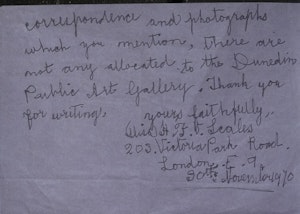 correspondence and photographs
which you mention, there are
not any allocated to the Dunedin
Public Art Gallery. Thank you
for writing.
yours faithfully,
(Miss) H. F. V. Scales
203. Victoria Park Road.
London. E. 9.
30th November 1970